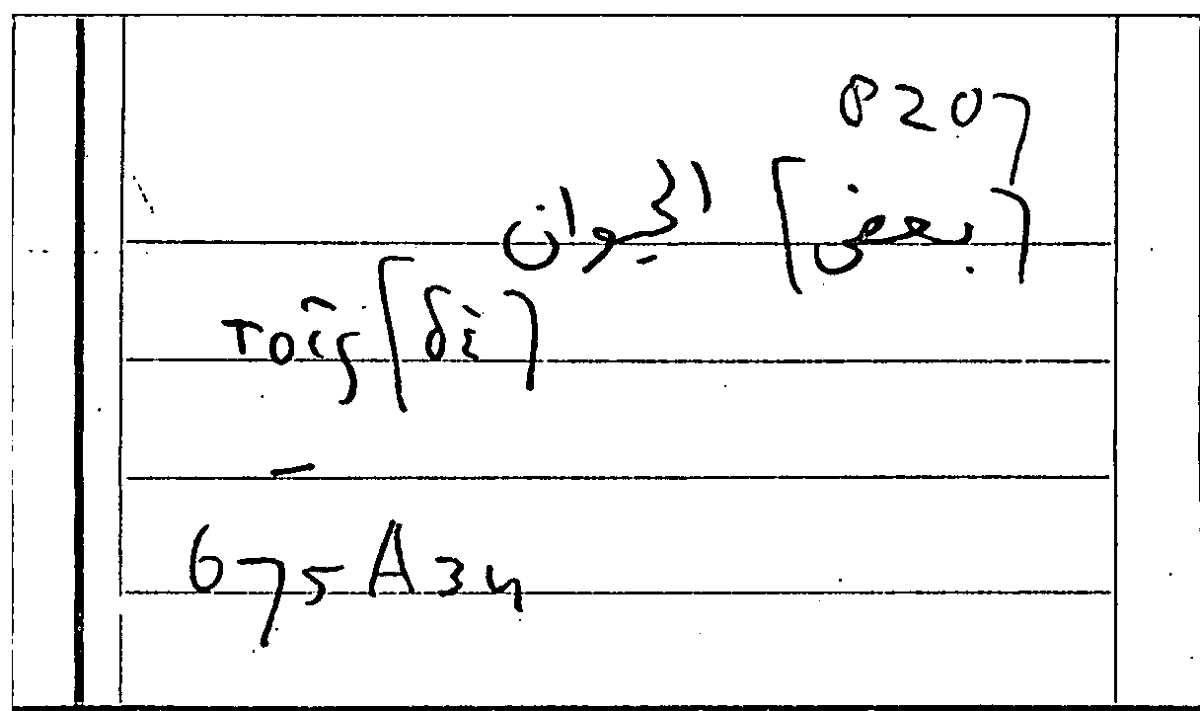 8207
[بعض] الحيوان
τοῖς [δὲ]
–
675A34